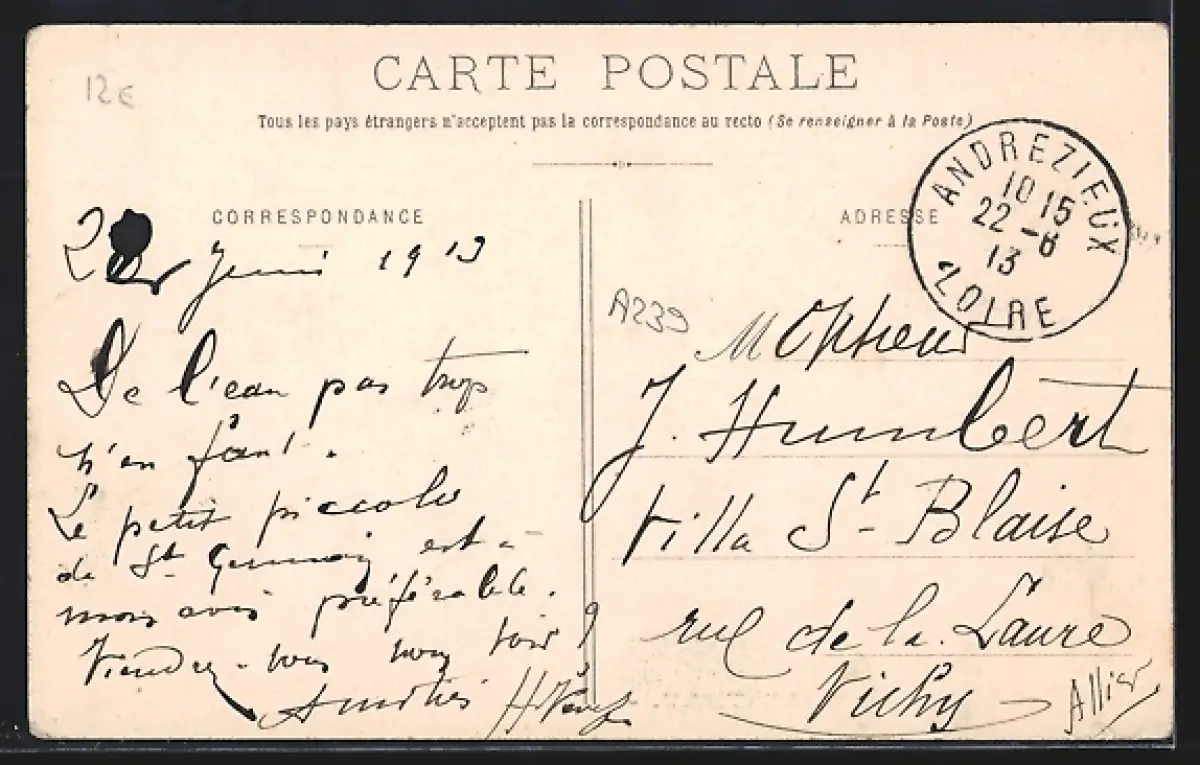 12€
CARTE POSTALE
Tous les pays étrangers n'acceptent pas la correspondance au recto (Se renseigner à la Poste)
CORRESPONDANCE
ADRESSE
ANDREZIEUX
10 15
22 - 6
13
LOIRE
22 Juin 1913
De l'eau pas trop
n'en faut.
Le petit piccolo
de St est à
mon avis préférable.
Viendrez-vous nous voir ?
Amitiés
A239
Monsieur
J. Humbert
Villa St Blaise
rue de la Laure
Vichy
Allier